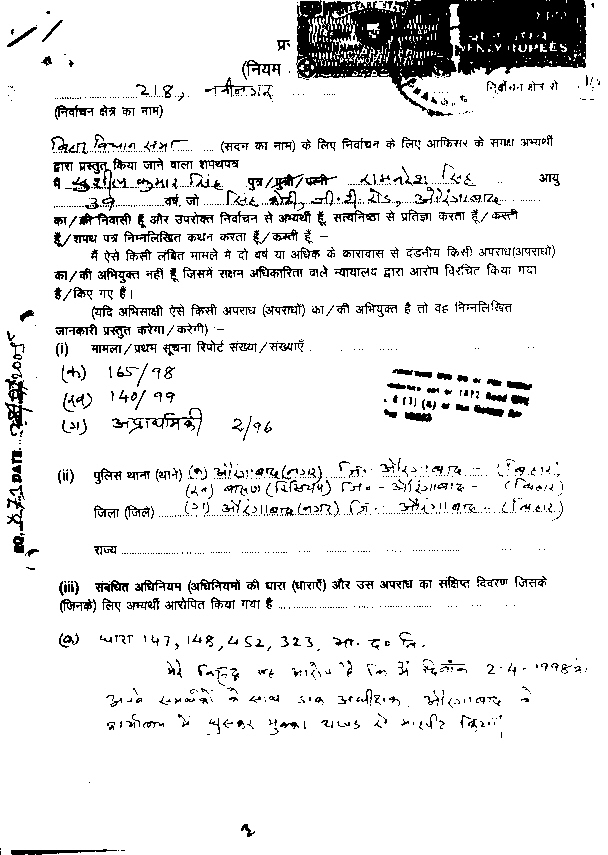 प्र
(नियम
218, नवीनगर
निर्वाचन क्षेत्र से
(निर्वाचन क्षेत्र का नाम)
बिहार विधान सभा (सदन का नाम) के लिए निर्वाचन के लिए आफिसर के समक्ष अभ्यर्थी
द्वारा प्रस्तुत किया जाने वाला शपथपत्र
मैं सुशील कुमार सिंह पुत्र/पुत्री/पत्नी रामनरेश सिंह आयु
39 वर्ष, जो सिंह कोठी, जी.टी. रोड, औरंगाबाद
का/की निवासी हूँ और उपरोक्त निर्वाचन से अभ्यर्थी हूँ, सत्यनिष्ठा से प्रतिज्ञा करता हूँ/करती
हूँ/शपथ पत्र निम्नलिखित कथन करता हूँ/करती हूँ –
मैं ऐसे किसी लंबित मामले में दो वर्ष या अधिक के कारावास से दंडनीय किसी अपराध(अपराधों)
का/की अभियुक्त नहीं हूँ जिसमें सक्षम अधिकारिता वाले न्यायालय द्वारा आरोप विरचित किया गया
है/किए गए है।
(यदि अभिसाक्षी ऐसे किसी अपराध (अपराधों) का/की अभियुक्त है तो वह निम्नलिखित
जानकारी प्रस्तुत करेगा/करेगी) :–
(i) मामला/प्रथम सूचना रिपोर्ट संख्या/संख्याएँ
(क) 165/98
(ख) 140/99
(ग) अप्राथमिकी 2/96
(ii) पुलिस थाना (थाने) (क) औरंगाबाद (नगर) जि. औरंगाबाद - (बिहार)
(ख) बारुण (सिरिस) जि. - औरंगाबाद - (बिहार)
जिला (जिले) (ग) औरंगाबाद (नगर) जि. औरंगाबाद - (बिहार)
राज्य
(iii) संबंधित अधिनियम (अधिनियमों की धारा (धाराएँ) और उस अपराध का संक्षिप्त विवरण जिसके
(जिनके) लिए अभ्यर्थी आरोपित किया गया है
(क) धारा 147, 148, 452, 323, भा. द. वि.
मेरे विरुद्ध यह आरोप है कि मैं दिनांक 2-4-1998 को
अपने समर्थकों के साथ डाक अधीक्षक औरंगाबाद के
कार्यालय में घुसकर मुक्का थप्पड़ से मारपीट किया।